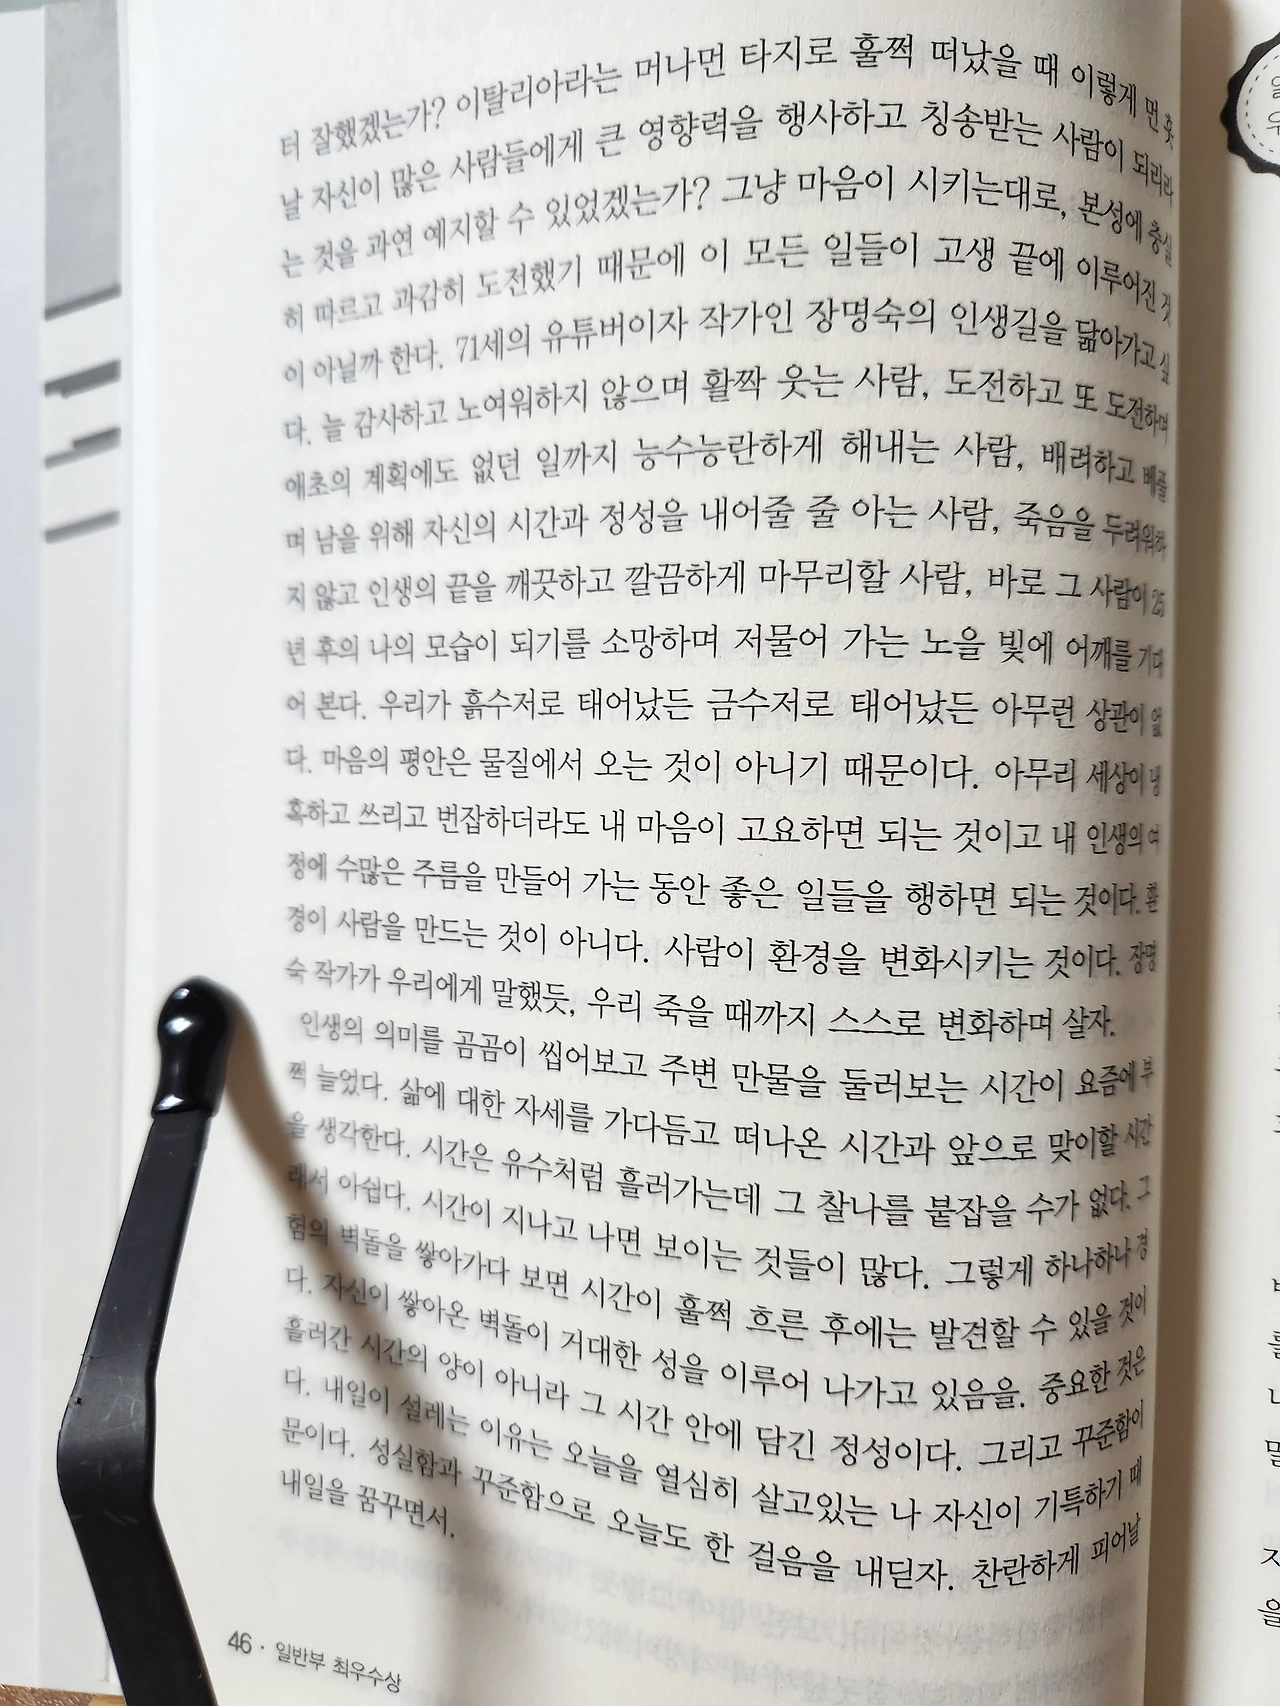 터 잘했겠는가? 이탈리아라는 머나먼 타지로 훌쩍 떠났을 때 이렇게 먼 훗
날 자신이 많은 사람들에게 큰 영향력을 행사하고 칭송받는 사람이 되리라
는 것을 과연 예지할 수 있었겠는가? 그냥 마음이 시키는대로, 본성에 충실
히 따르고 과감히 도전했기 때문에 이 모든 일들이 고생 끝에 이루어진 것
이 아닐까 한다. 71세의 유튜버이자 작가인 장명숙의 인생길을 닮아가고 싶
다. 늘 감사하고 노여워하지 않으며 활짝 웃는 사람, 도전하고 또 도전하며
애초의 계획에도 없던 일까지 능수능란하게 해내는 사람, 배려하고 베풀
며 남을 위해 자신의 시간과 정성을 내어줄 줄 아는 사람, 죽음을 두려워하
지 않고 인생의 끝을 깨끗하고 깔끔하게 마무리할 사람, 바로 그 사람이 25
년 후의 나의 모습이 되기를 소망하며 저물어 가는 노을 빛에 어깨를 기대
어 본다. 우리가 흙수저로 태어났든 금수저로 태어났든 아무런 상관이 없
다. 마음의 평안은 물질에서 오는 것이 아니기 때문이다. 아무리 세상이 냉
혹하고 쓰리고 번잡하더라도 내 마음이 고요하면 되는 것이고 내 인생의 여
정에 수많은 주름을 만들어 가는 동안 좋은 일들을 행하면 되는 것이다. 환
경이 사람을 만드는 것이 아니다. 사람이 환경을 변화시키는 것이다. 장명
숙 작가가 우리에게 말했듯, 우리 죽을 때까지 스스로 변화하며 살자.
인생의 의미를 곰곰이 씹어보고 주변 만물을 둘러보는 시간이 요즘에 부
쩍 늘었다. 삶에 대한 자세를 가다듬고 떠나온 시간과 앞으로 맞이할 시간
을 생각한다. 시간은 유수처럼 흘러가는데 그 찰나를 붙잡을 수가 없다. 그
래서 아쉽다. 시간이 지나고 나면 보이는 것들이 많다. 그렇게 하나하나 경
험의 벽돌을 쌓아가다 보면 시간이 훌쩍 흐른 후에는 발견할 수 있을 것이
다. 자신이 쌓아온 벽돌이 거대한 성을 이루어 나가고 있음을. 중요한 것은
흘러간 시간의 양이 아니라 그 시간 안에 담긴 정성이다. 그리고 꾸준함이
다. 내일이 설레는 이유는 오늘을 열심히 살고있는 나 자신이 기특하기 때
문이다. 성실함과 꾸준함으로 오늘도 한 걸음을 내딛자. 찬란하게 피어날
내일을 꿈꾸면서.
46 · 일반부 최우수상